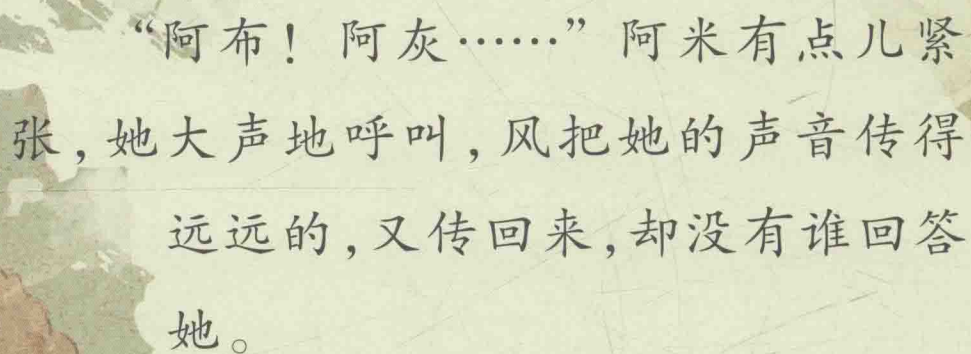 “阿布！阿灰……”阿米有点儿紧
张，她大声地呼叫，风把她的声音传得
远远的，又传回来，却没有谁回答
她。